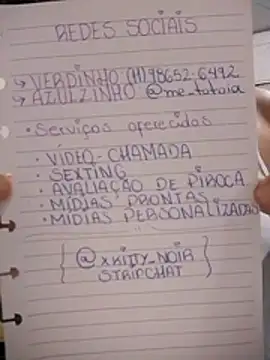 REDES SOCIAIS
↳ VERDINHO (11) 98652-6492
↳ AZULZINHO @me_totoia
• Serviços oferecidos
• VÍDEO-CHAMADA
• SEXTING
• AVALIAÇÃO DE PIROCA
• MÍDIAS PRONTAS
• MÍDIAS PERSONALIZADAS
{ @xKITTY_NOIR }
STRIPCHAT